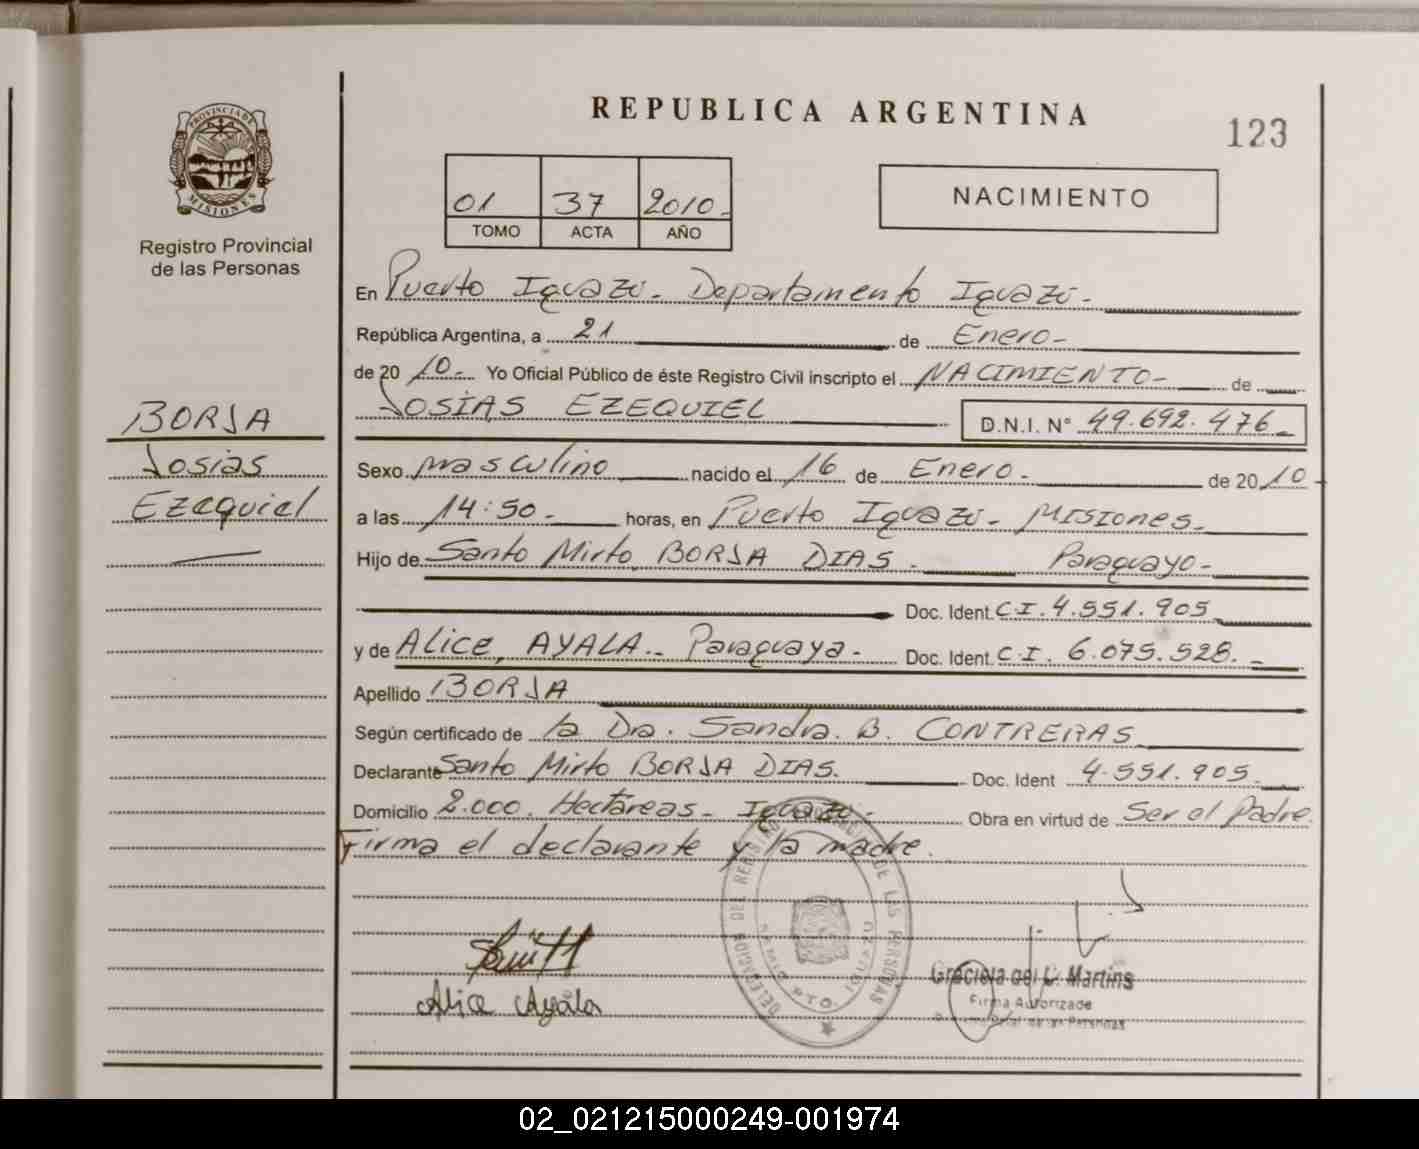 PROVINCIA DE
MISIONES
Registro Provincial
de las Personas
BORJA
Josias
Ezequiel
REPUBLICA ARGENTINA
123
01 37 2010
TOMO ACTA AÑO
NACIMIENTO
En Puerto Iguazú - Departamento Iguazú -
República Argentina, a 21 de Enero -
de 20 10 - Yo Oficial Público de éste Registro Civil inscripto el NACIMIENTO - de
JOSIAS EZEQUIEL D.N.I. N° 49.692.476
Sexo masculino nacido el 16 de Enero - de 20 10
a las 14:50 - horas, en Puerto Iguazú - Misiones -
Hijo de Santo Mirto BORJA DIAS - Paraguayo -
Doc. Ident. C.I. 4.551.905
y de Alice, AYALA - Paraguaya - Doc. Ident. C.I. 6.075.528. -
Apellido BORJA
Según certificado de la Dra. Sandra B. CONTRERAS
Declarante Santo Mirto BORJA DIAS. Doc. Ident 4.551.905
Domicilio 2.000 Hectáreas - Iguazú - Obra en virtud de Ser el Padre.
Firma el declarante y la madre.
DELEGACION DEL REGISTRO DE LAS PERSONAS
PTO. IGUAZU
Alice Ayala
Graciela del C. Martins
Firma Autorizada
de las Personas
02_021215000249-001974